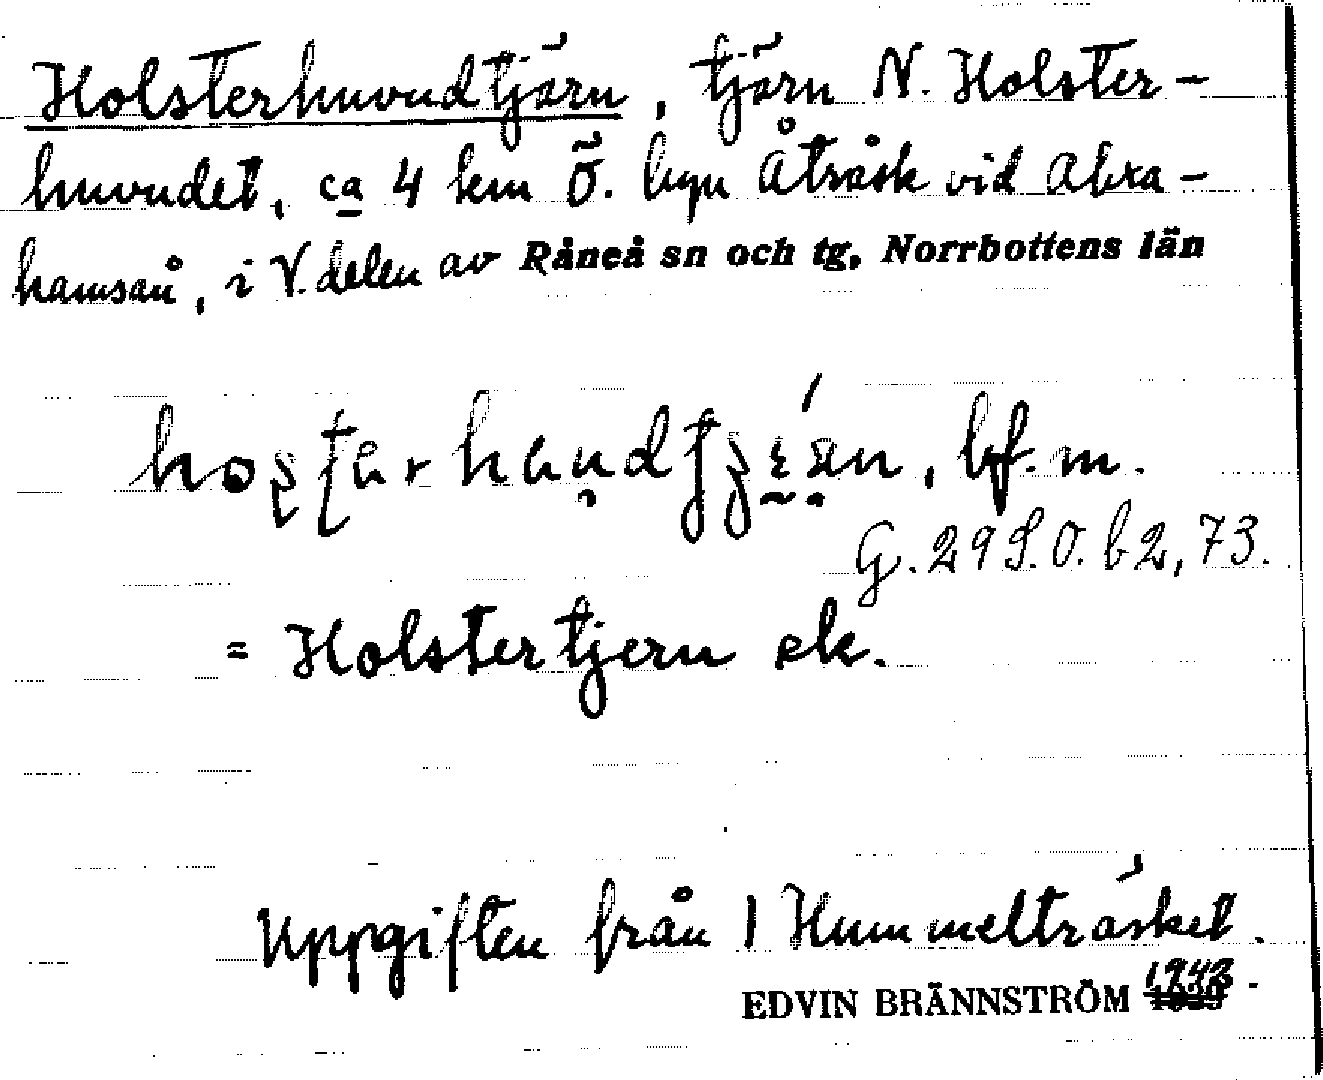 Holsterhuvudtjärn, tjärn N. Holster-
huvudet, ca 4 km Ö. byn Åträsk vid Abra-
hamsån, i V. delen av Råneå sn och tg, Norrbottens län
bf. m.
G. 29 S. O. b 2, 73.
= Holstertjern ek.
Uppgiften från 1 Hummelträsket.
EDVIN BRÄNNSTRÖM 1943.